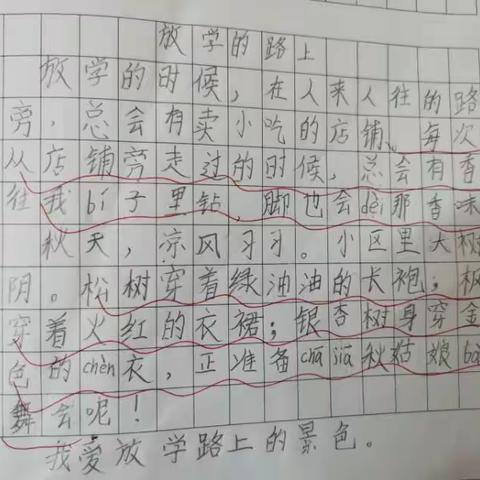 放学的路上
放学的时候，在人来人往的路
旁，总会有卖小吃的店铺。每次
从店铺旁走过的时候，总会有香
往我bí子里钻，脚也会dèi那香味
秋天，凉风习习。小区里大树
阴。松树穿着绿油油的长袍；枫
穿着火红的衣裙；银杏树身穿金
色的chèn衣，正准备chā jiā秋姑娘
舞会呢！
我爱放学路上的景色。